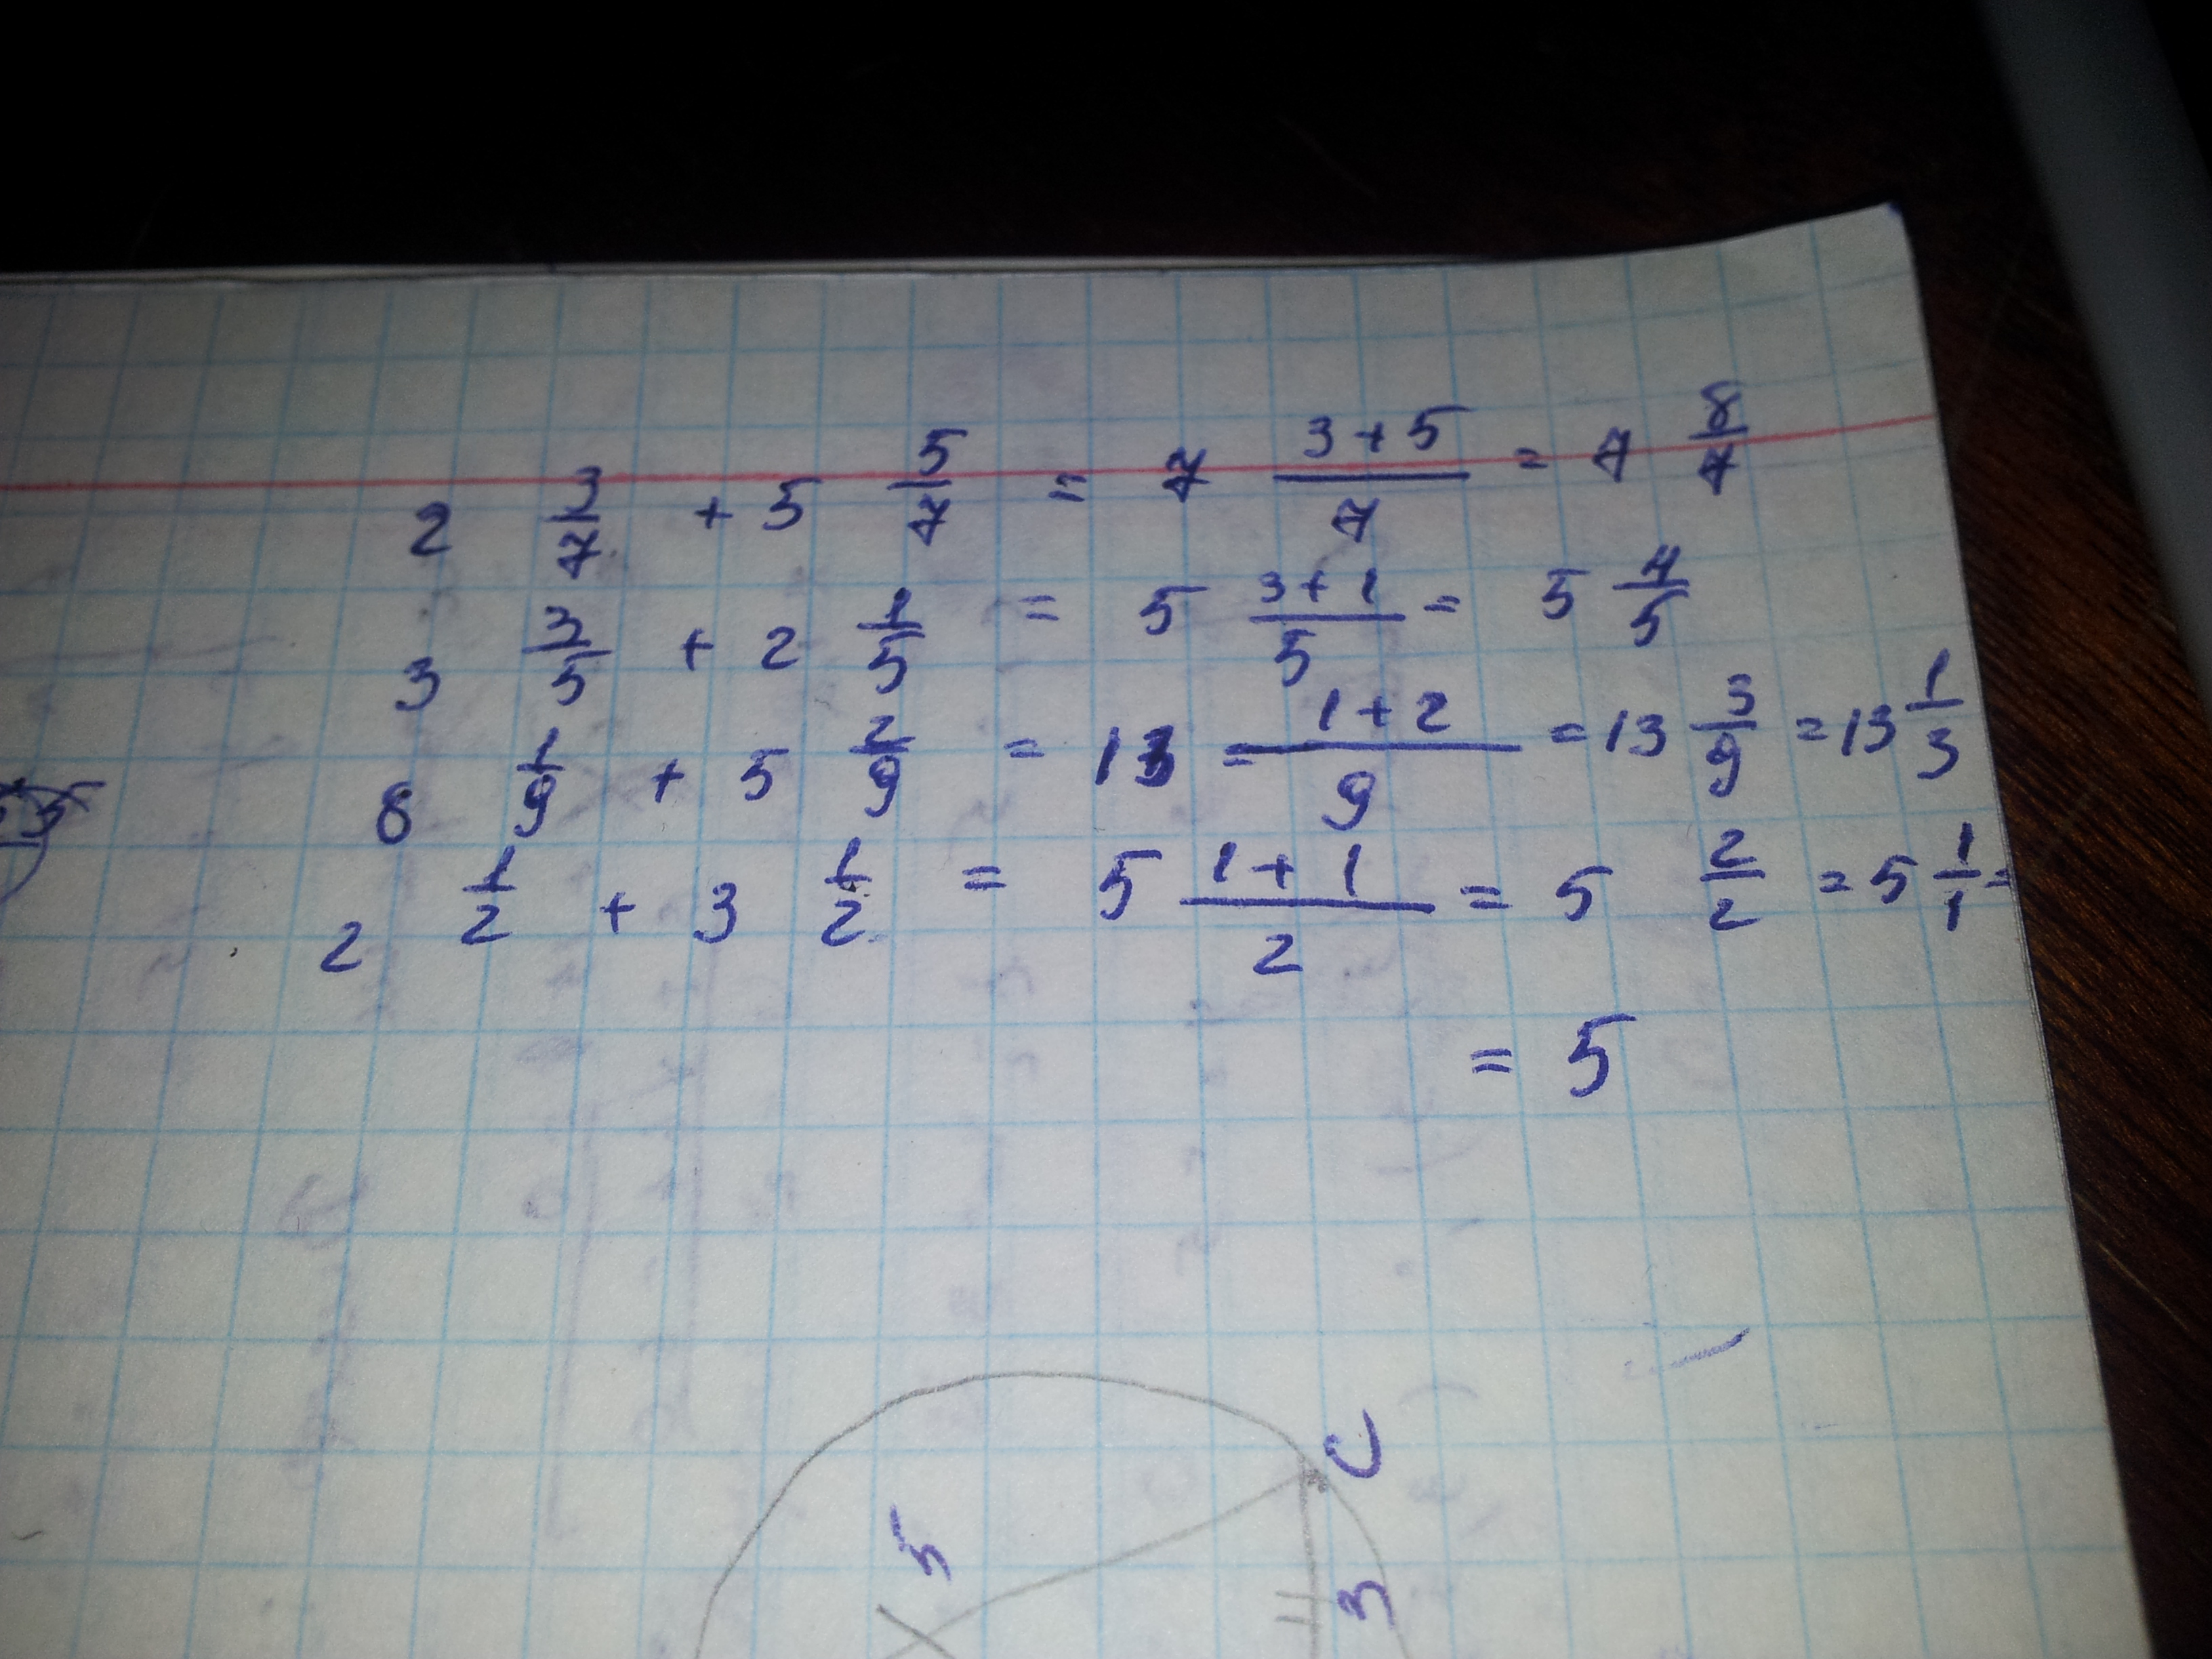 2 3/7 + 5 5/7 = 7 (3+5)/7 = 7 8/7
3 3/5 + 2 1/5 = 5 (3+1)/5 = 5 4/5
8 1/9 + 5 2/9 = 13 = (1+2)/9 = 13 3/9 = 13 1/3
2 1/2 + 3 1/2 = 5 (1+1)/2 = 5 2/2 = 5 1/1 =
= 5
C
5
3